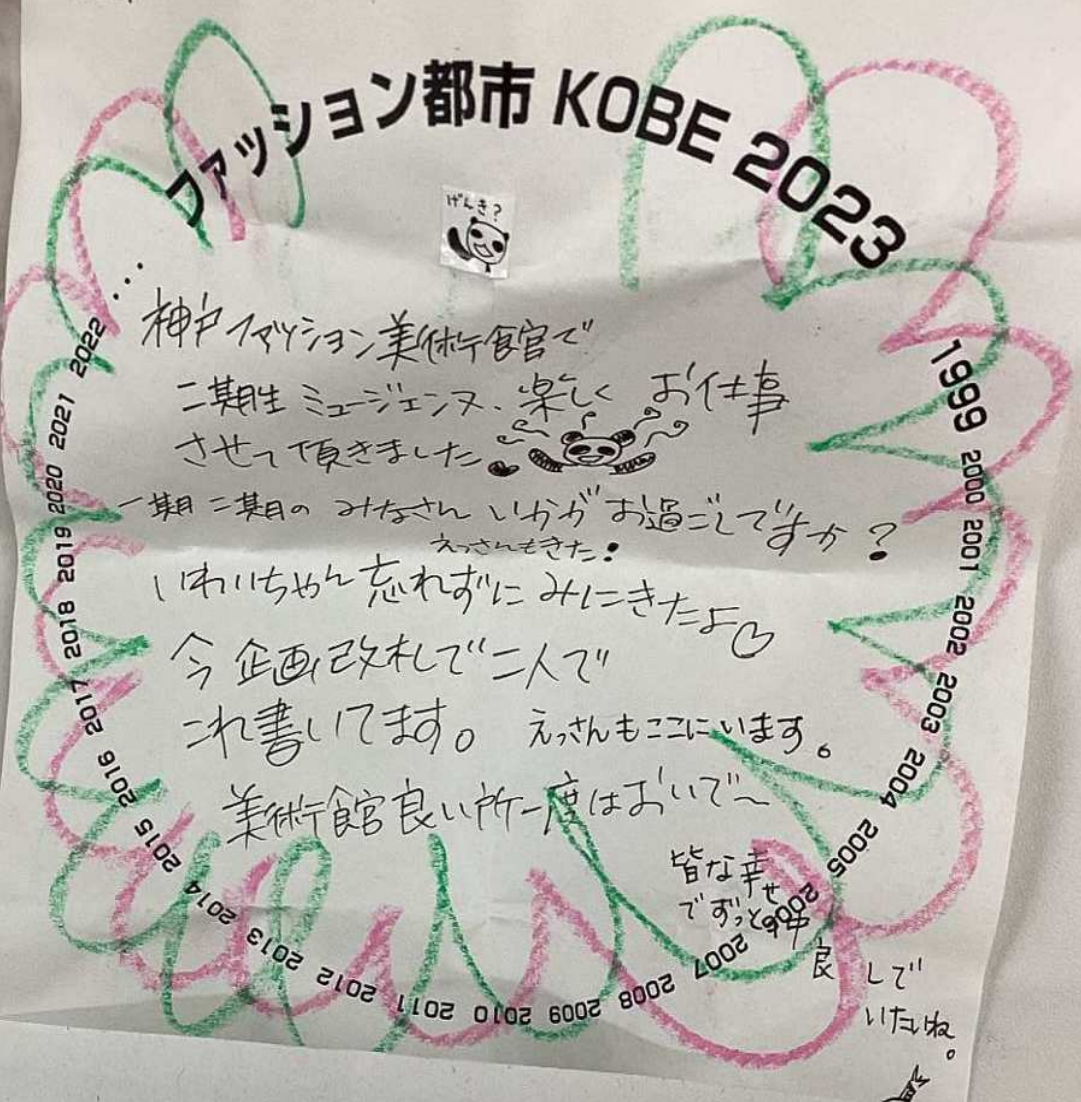 ファッション都市 KOBE 2023
げんき?
1999 2000 2001 2002 2003 2004 2005 2006 2007 2008 2009 2010 2011 2012 2013 2014 2015 2016 2017 2018 2019 2020 2021 2022 ...
神戸ファッション美術館で
二期生 ミュージェンヌ、楽しく お仕事
させて頂きました
一期二期の みなさん いかが お過ごしですか?
えっさんもきた!
いわいちゃん忘れずに みにきたよ♡
今 企画改札で 二人で
これ書いてます。 えっさんもここにいます。
美術館良い所一度はおいで〜
皆な幸せ
でずっと仲
良しで
いたいね。